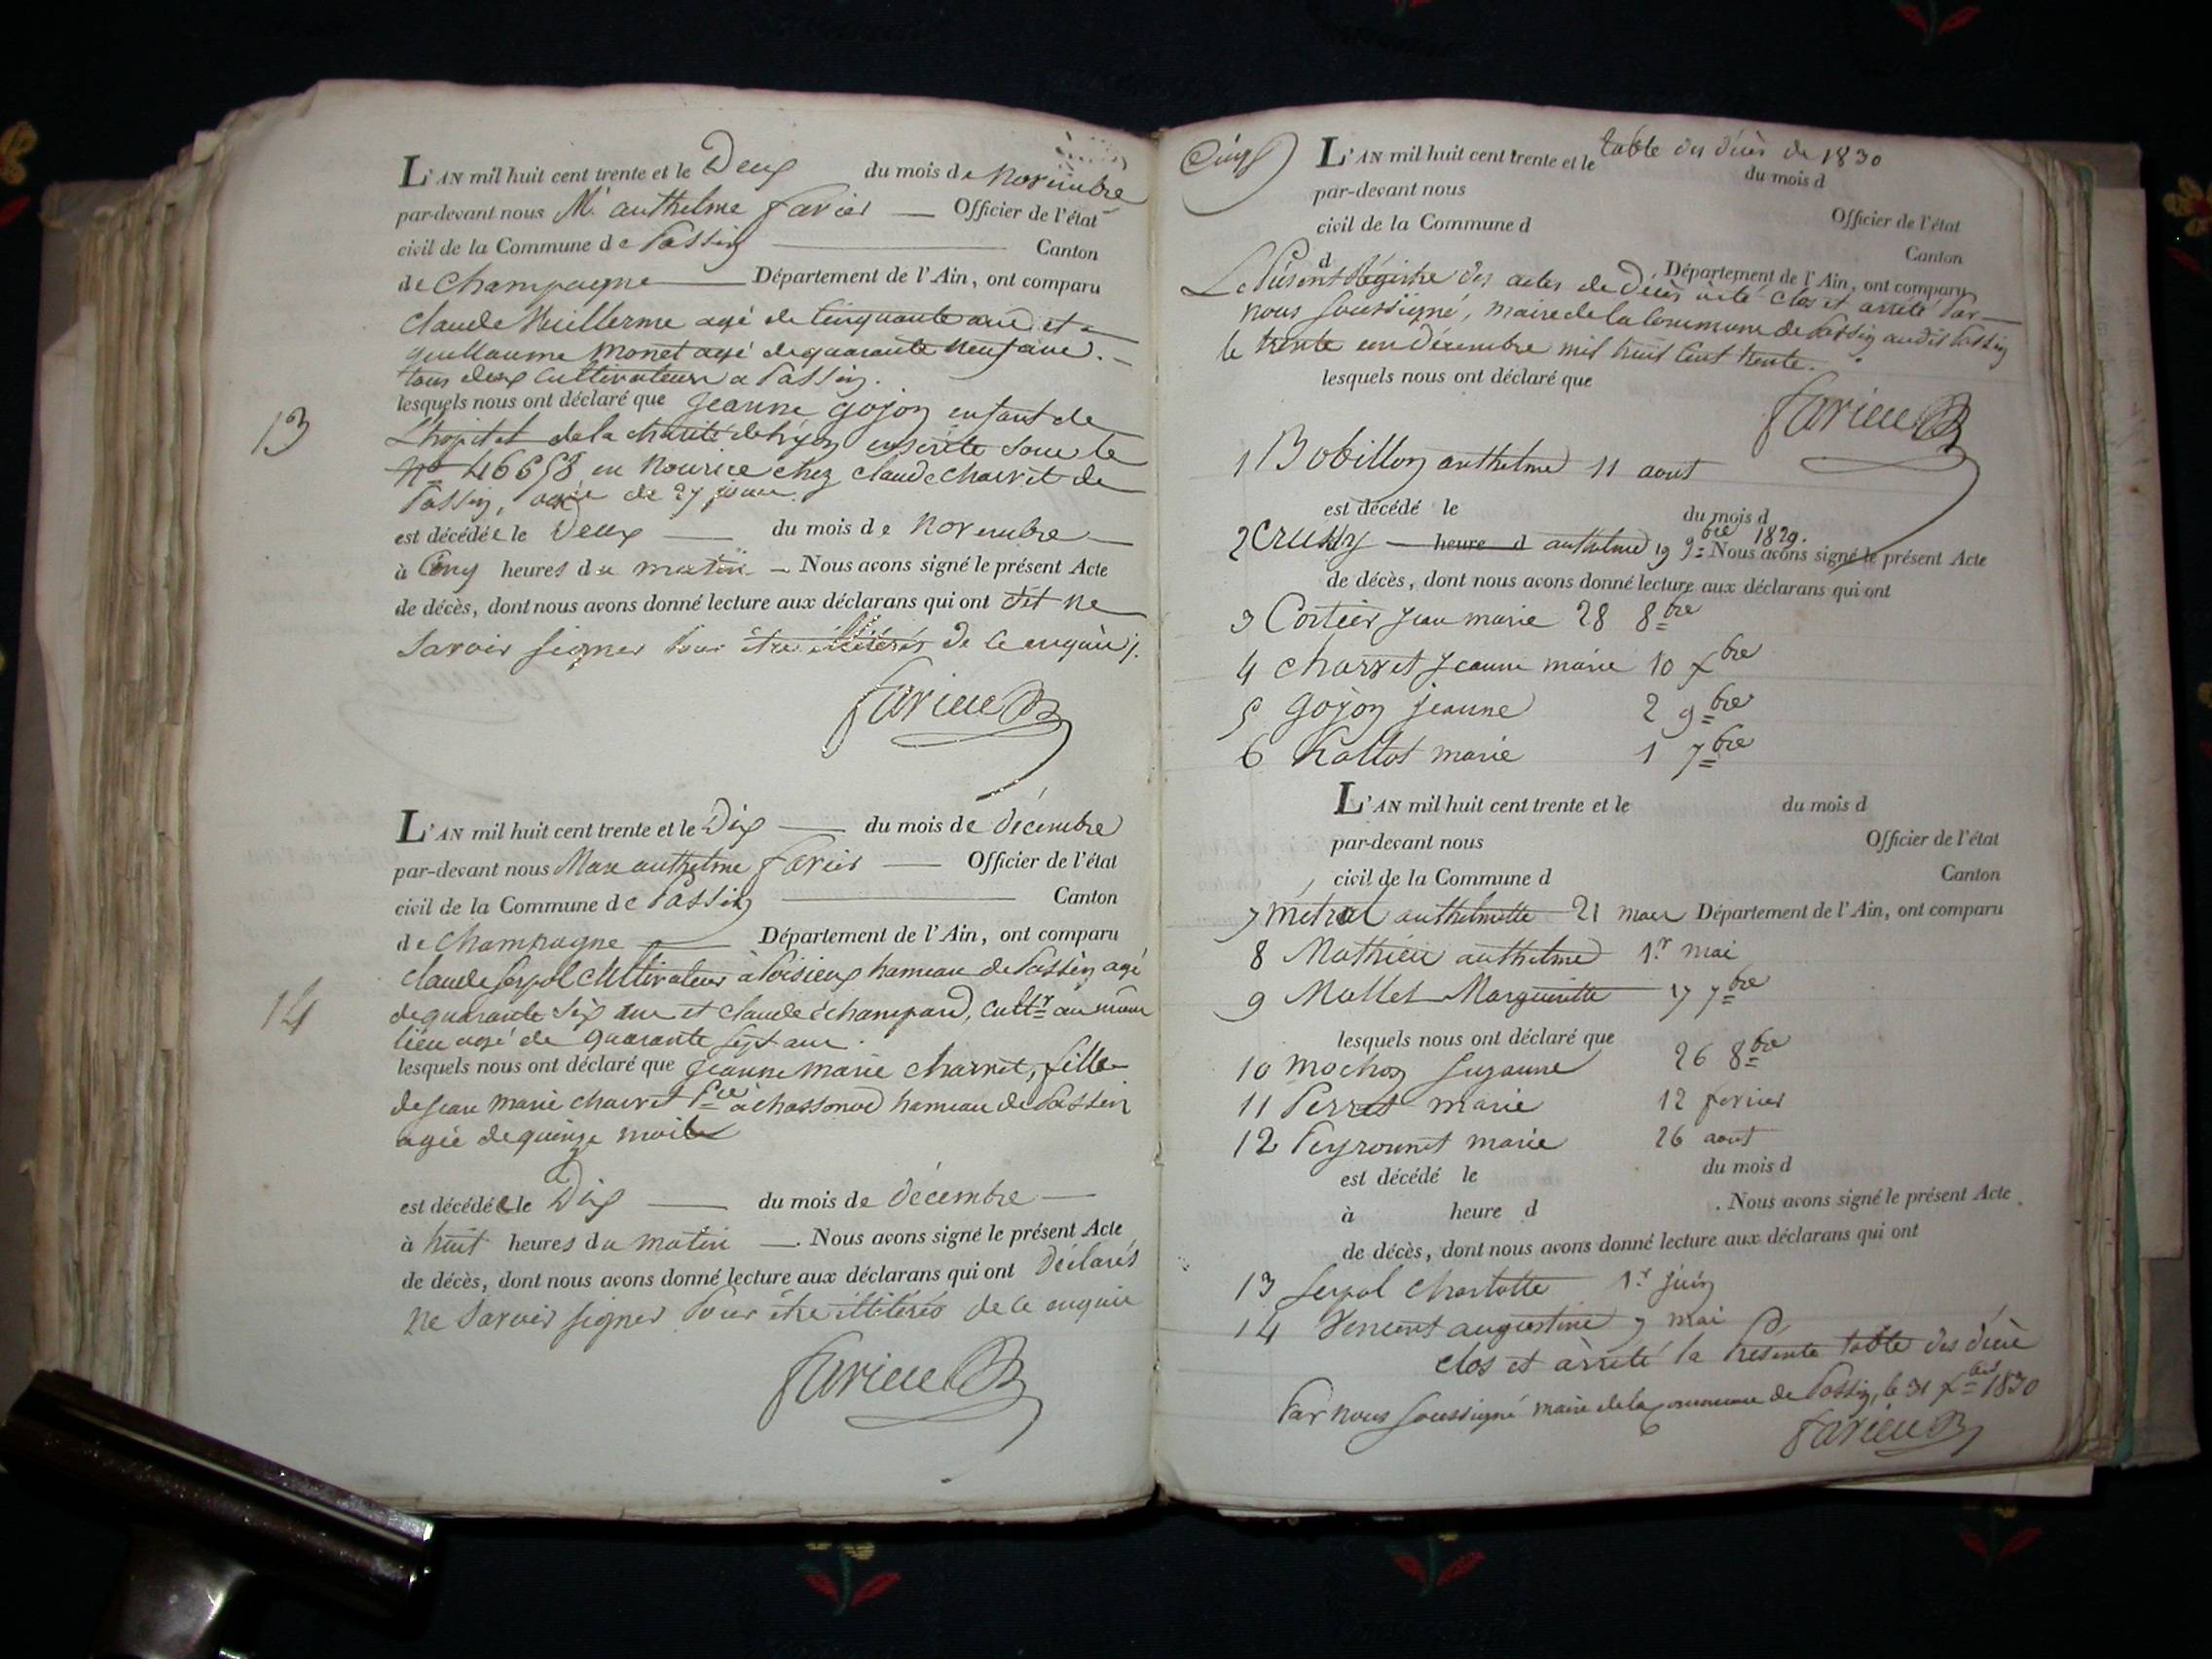 L'AN mil huit cent trente et le Deux du mois de Novembre
par-devant nous M. anthelme favier Officier de l'état
civil de la Commune de Passin Canton
de Champagne Département de l'Ain, ont comparu
claude Vuillerme agé de Cinquante ans et
guillaume monet agé de quarante neuf ans.
tous deux cultivateurs a Passin.
13
lesquels nous ont déclaré que jeanne gojon enfant de
L'hopital de la charité de Lyon inscrite sous le
N° 46658 en nourice chez claude charvet de
Passin, agée de 27 jours.
est décédée le Deux du mois de Novembre
à Cinq heures du matin Nous avons signé le présent Acte
de décès, dont nous avons donné lecture aux déclarans qui ont dit ne
savoir signer pour être illitérés de ce enquis.
favier
L'AN mil huit cent trente et le Dix du mois de décembre
par-devant nous Marc anthelme favier Officier de l'état
civil de la Commune de Passin Canton
de Champagne Département de l'Ain, ont comparu
claude serpol cultivateur à Poisieux hameau de Passin agé
14
de quarante six ans et claude échampard, cultr au même
lieu agé de quarante sept ans.
lesquels nous ont déclaré que jeanne marie charvet, fille
de jean marie charvet à chassonod hameau de Passin
agée de quinze mois
est décédée le Dix du mois de décembre
à huit heures du matin . Nous avons signé le présent Acte
de décès, dont nous avons donné lecture aux déclarans qui ont déclarés
ne savoir signer pour être illitérés de ce enquis
favier
Cinq
L'AN mil huit cent trente et le table des décès de 1830
du mois d
par-devant nous
Officier de l'état
civil de la Commune d
Canton
d Département de l'Ain, ont comparu
Le Présent Régistre des actes de décès à été clos et arrété Par
nous soussigné, maire de la Commune de Passin audit Passin
le trente un décembre mil huit cent trente.
lesquels nous ont déclaré que
favier
1 Bobillon anthelme 11 aout
est décédé le du mois d
2 Crussy heure d anthelme 19 9bre 1829. Nous avons signé le présent Acte
de décès, dont nous avons donné lecture aux déclarans qui ont
3 Cortier jean marie 28 8bre
4 charvet jeanne marie 10 xbre
5 gojon jeanne 2 9bre
6 marie 1 7bre
L'AN mil huit cent trente et le du mois d
par-devant nous Officier de l'état
civil de la Commune d Canton
7 métral anthelmette 21 mars Département de l'Ain, ont comparu
8 Mathieu anthelme 1r mai
9 Mollet Margueritte 17 7bre
lesquels nous ont déclaré que
10 mochon suzanne 26 8bre
11 Perret marie 12 fevrier
12 Peyrounet marie 26 aout
est décédé le du mois d
à heure d . Nous avons signé le présent Acte
de décès, dont nous avons donné lecture aux déclarans qui ont
13 serpol charlotte 1r juin
14 Vincent augustine 7 mai
clos et arrété la présente table des décès
Par nous soussigné maire de la Commune de Passin, le 31 xbre 1830
favier